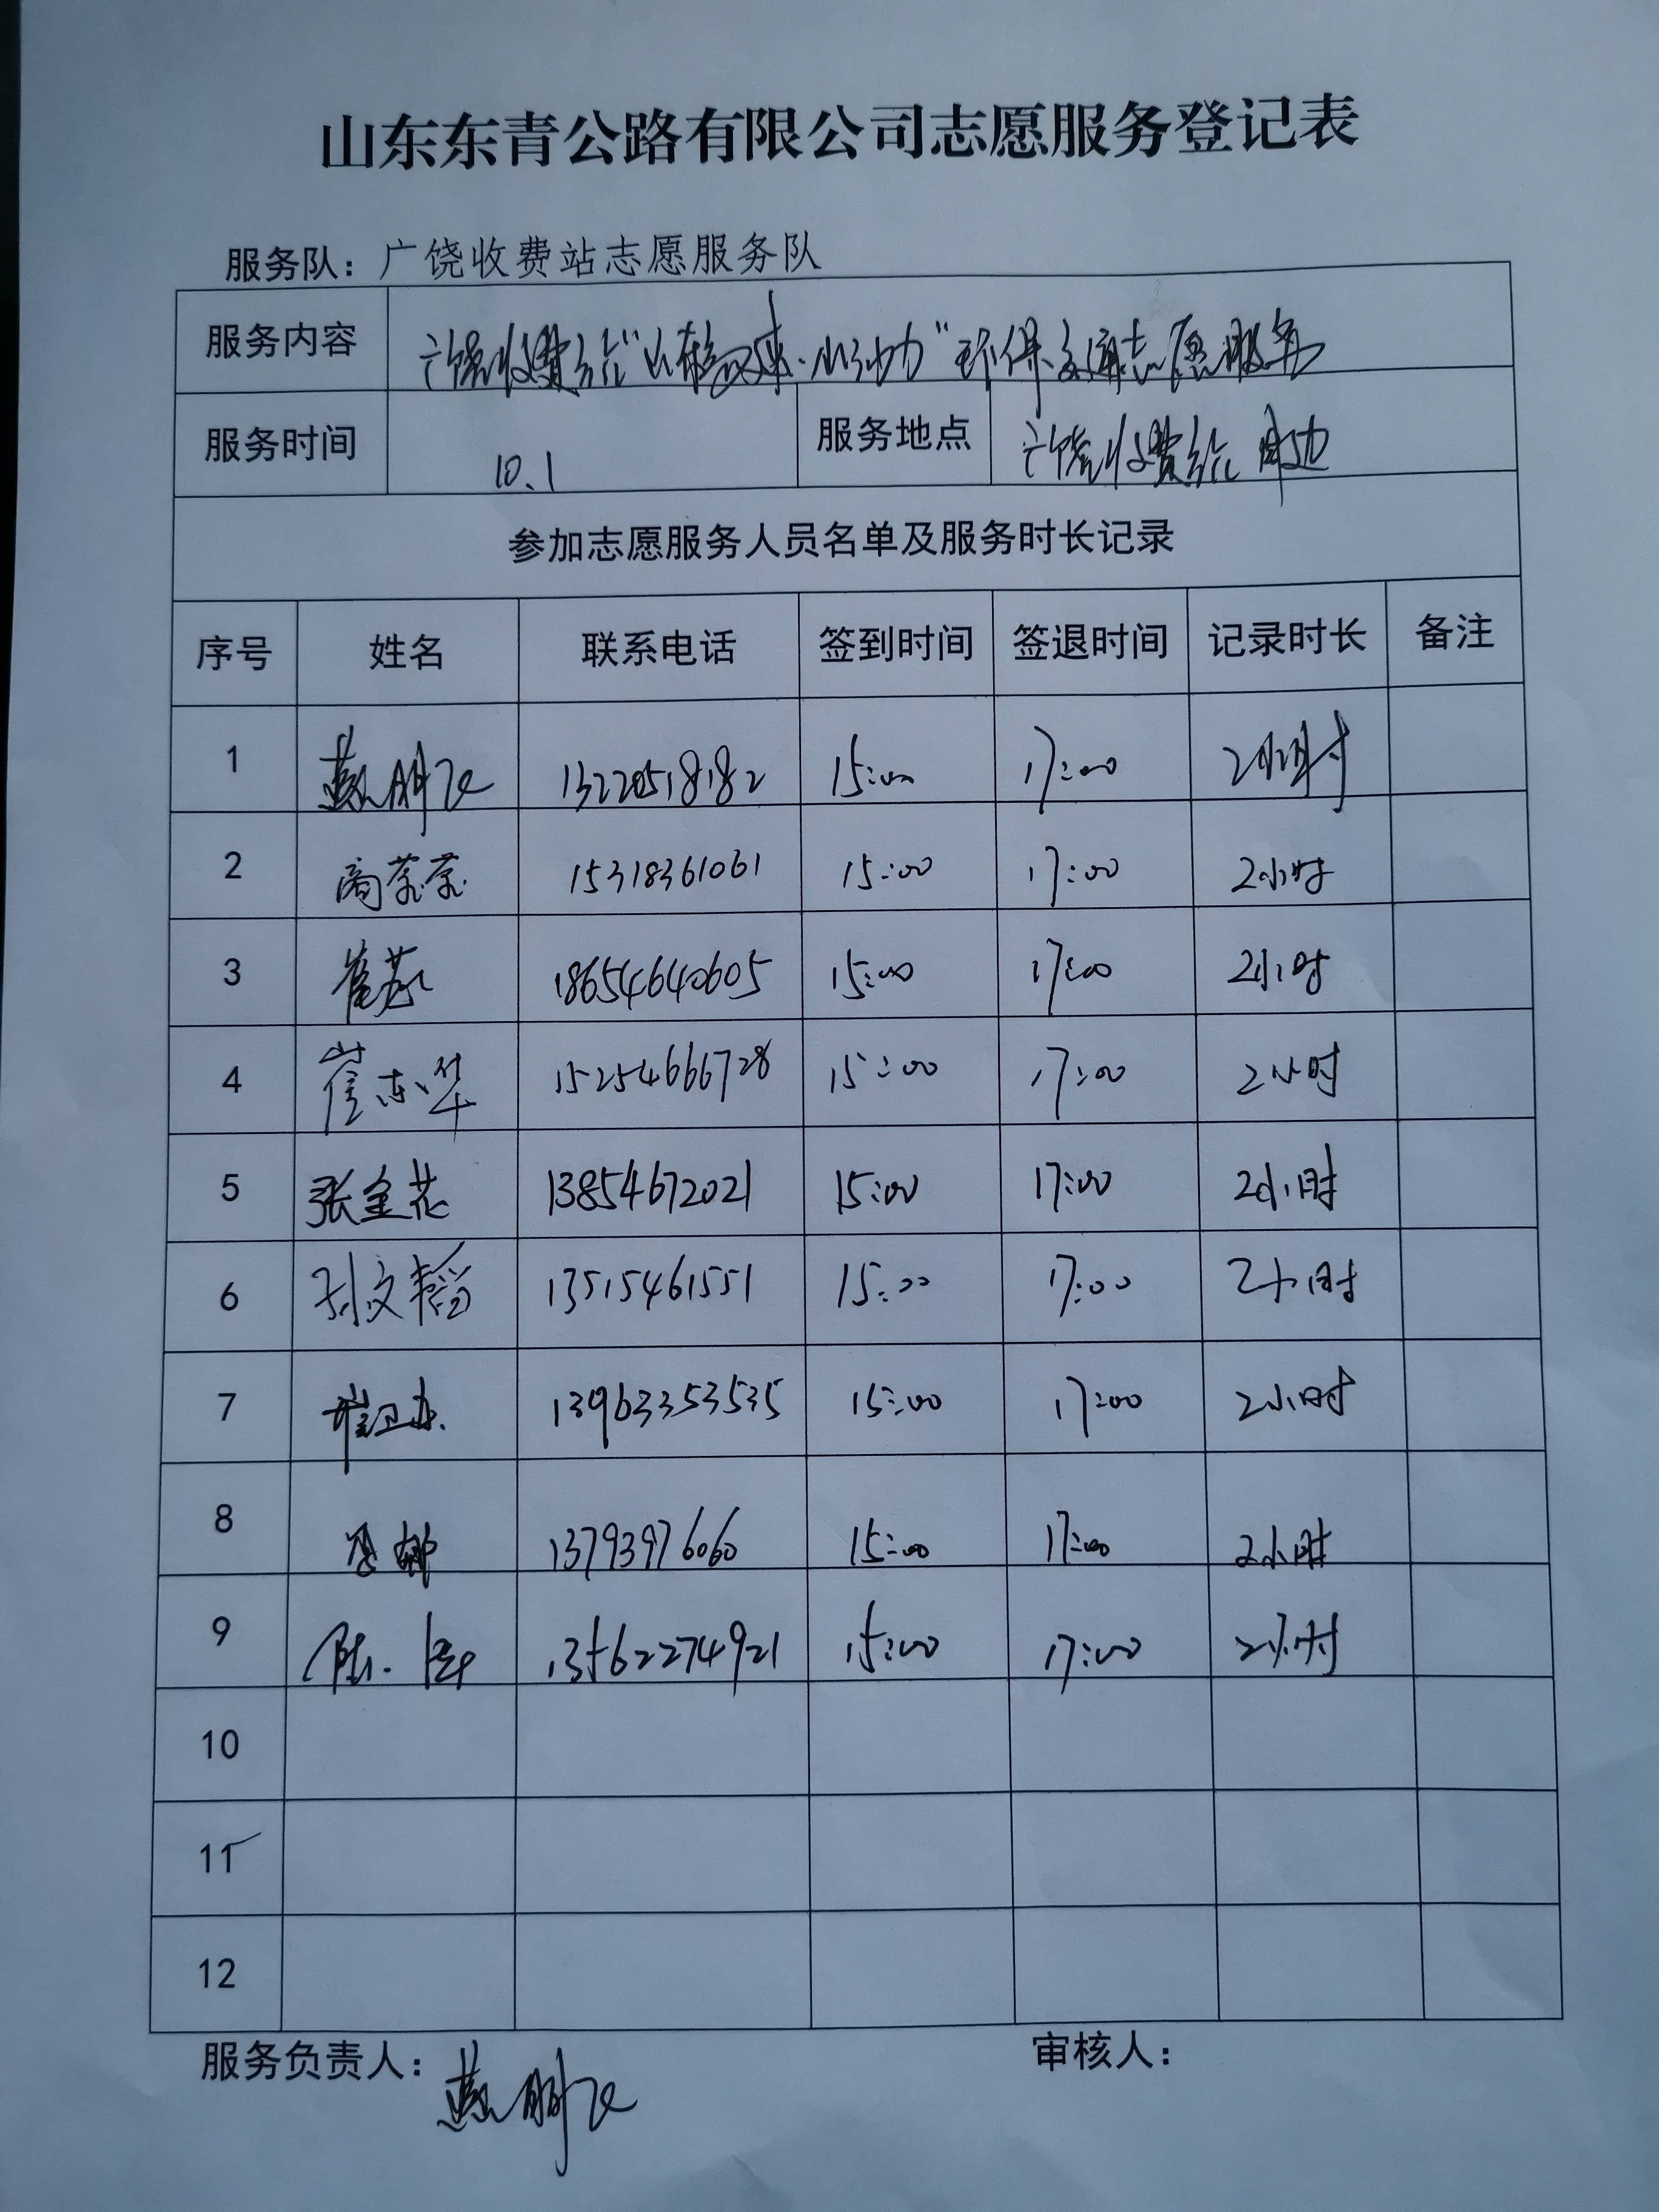 山东东青公路有限公司志愿服务登记表
服务队：广饶收费站志愿服务队
服务内容 广饶收费站 " 小行动" 环保交通志愿服务
服务时间 10.1 服务地点 广饶收费站周边
参加志愿服务人员名单及服务时长记录
序号 姓名 联系电话 签到时间 签退时间 记录时长 备注
1 燕鹏飞 13220518182 15:00 17:00 2小时
2 商荣荣 15318361061 15:00 17:00 2小时
3 崔燕 18654640605 15:00 17:00 2小时
4 崔东华 15254666728 15:00 17:00 2小时
5 张金花 13854672021 15:00 17:00 2小时
6 孙文韬 13515461551 15:00 17:00 2小时
7 崔卫东 13963353535 15:00 17:00 2小时
8 13793976060 15:00 17:00 2小时
9 陈 13562274921 15:00 17:00 2小时
10
11
12
服务负责人：燕鹏飞 审核人：